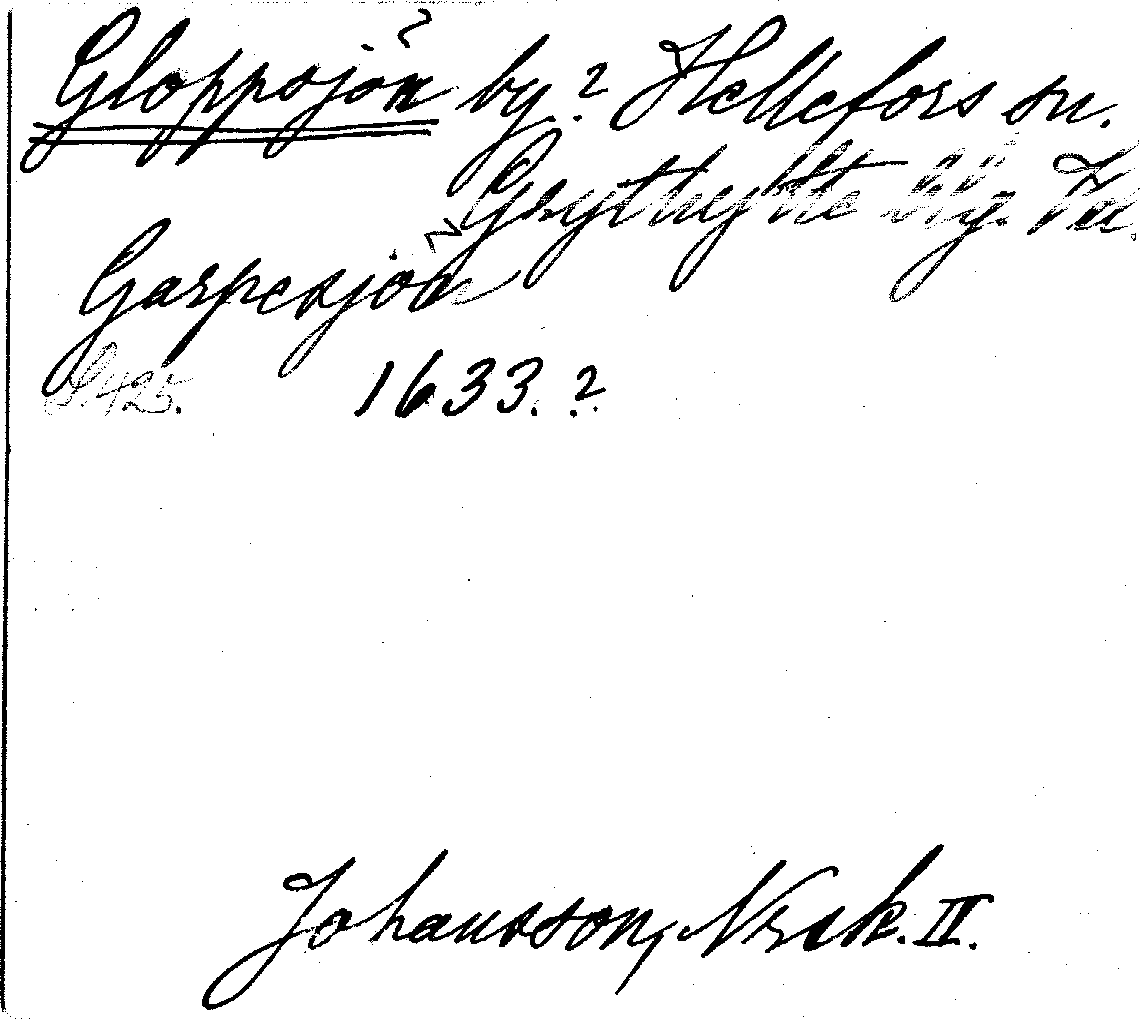 Gloppsjön by? Hellefors sn.
Grythytte blg. Vstm.
Garpesjön
S. 425. 1633.?
Johansson, Norask. II.